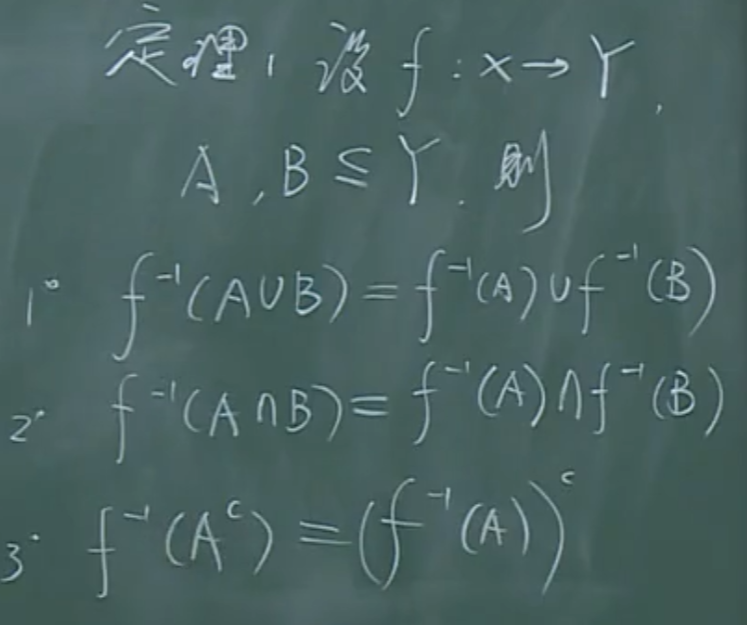 定理1 设 f : X → Y,
A, B ⊆ Y. 则
1° f⁻¹(A∪B) = f⁻¹(A)∪f⁻¹(B)
2° f⁻¹(A∩B) = f⁻¹(A)∩f⁻¹(B)
3° f⁻¹(Aᶜ) = (f⁻¹(A))ᶜ